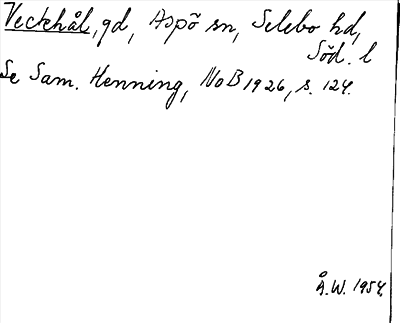 Veckhål, gd, Aspö sn, Selebo hd,
Söd. l
Se Sam. Henning, NoB 1926, s. 124.
Å.W. 1954.